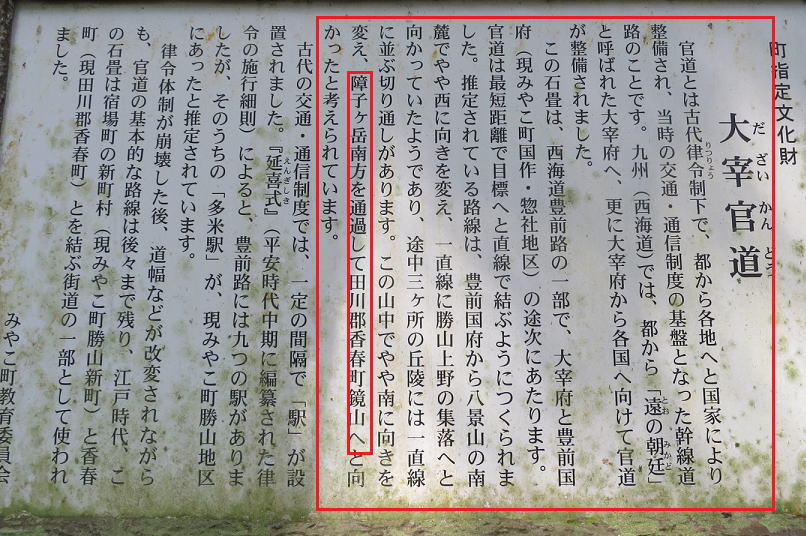 町指定文化財
大宰官道
だざいかんどう
官道とは古代律令制下で、都から各地へと国家により
りつりょう
整備され、当時の交通・通信制度の基盤となった幹線道
路のことです。九州（西海道）では、都から「遠の朝廷」
とおみかど
と呼ばれた大宰府へ、更に大宰府から各国へ向けて官道
が整備されました。
この石畳は、西海道豊前路の一部で、大宰府と豊前国
府（現みやこ町国作・惣社地区）の途次にあたります。
官道は最短距離で目標へと直線で結ぶようにつくられま
した。推定されている路線は、豊前国府から八景山の南
麓でやや西に向きを変え、一直線に勝山上野の集落へと
向かっていたようであり、途中三ヶ所の丘陵には一直線
に並ぶ切り通しがあります。この山中でやや南に向きを
変え、障子ヶ岳南方を通過して田川郡香春町鏡山へと向
かったと考えられています。
古代の交通・通信制度では、一定の間隔で「駅」が設
置されました。『延喜式』（平安時代中期に編纂された律
えんぎしき
令の施行細則）によると、豊前路には九つの駅がありま
したが、そのうちの「多米駅」が、現みやこ町勝山地区
にあったと推定されています。
律令体制が崩壊した後、道幅などが改変されながら
も、官道の基本的な路線は後々まで残り、江戸時代、こ
の石畳は宿場町の新町村（現みやこ町勝山新町）と香春
町（現田川郡香春町）とを結ぶ街道の一部として使われ
ました。
みやこ町教育委員会